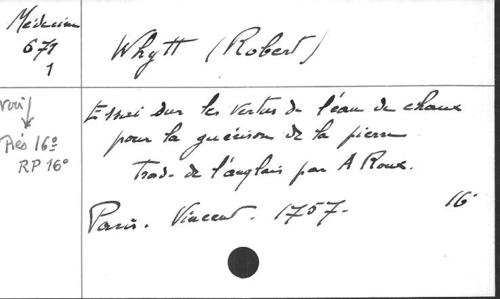 Médecine
671
1
Whytt (Robert)
voir
Rés 16°
RP 16°
Essai sur les vertus de l'eau de chaux
pour la guérison de la pierre
Trad. de l'anglais par A Roux.
Paris. Vincent. 1757. 16°